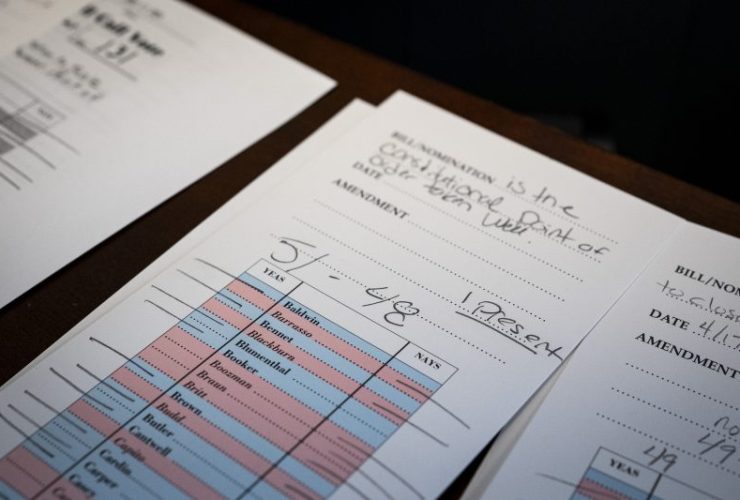 ll Call Vote
131
NA
BILL/NOMINATION is the
Constitutional point of
order taken well.
DATE
AMENDMENT
51 - 48
1 Present
YEAS
NAYS
Baldwin
Barrasso
Bennet
Blackburn
Blumenthal
Booker
Boozman
Braun
Britt
Brown
Budd
Butler
Cantwell
Capito
Cardin
Carper
Casey
BILL/NO
to a
DATE 4/17
AMENDMENT
no
49
49
YEAS